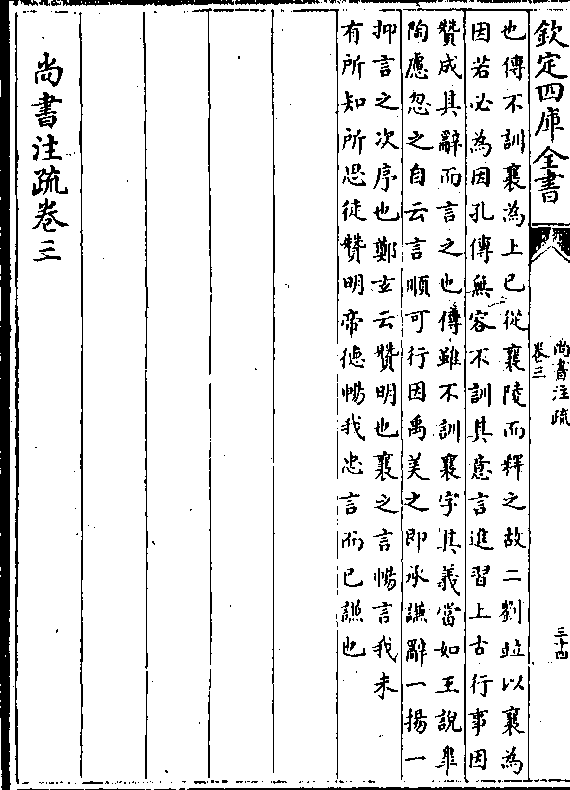 欽定四庫全書
尚書注疏
卷三
三十四
也傳不訓襄為上已從襄陵而釋之故二劉並以襄為
因若必為因孔傳無容不訓其意言進習上古行事因
贊成其辭而言之也傳雖不訓襄字其義當如王說臯
陶慮忽之自云言順可行因禹美之即承謙辭一揚一
抑言之次序也鄭𤣥云贊明也襄之言暢言我未
有所知所思徒贊明帝徳暢我忠言而已謙也
尚書注疏卷三